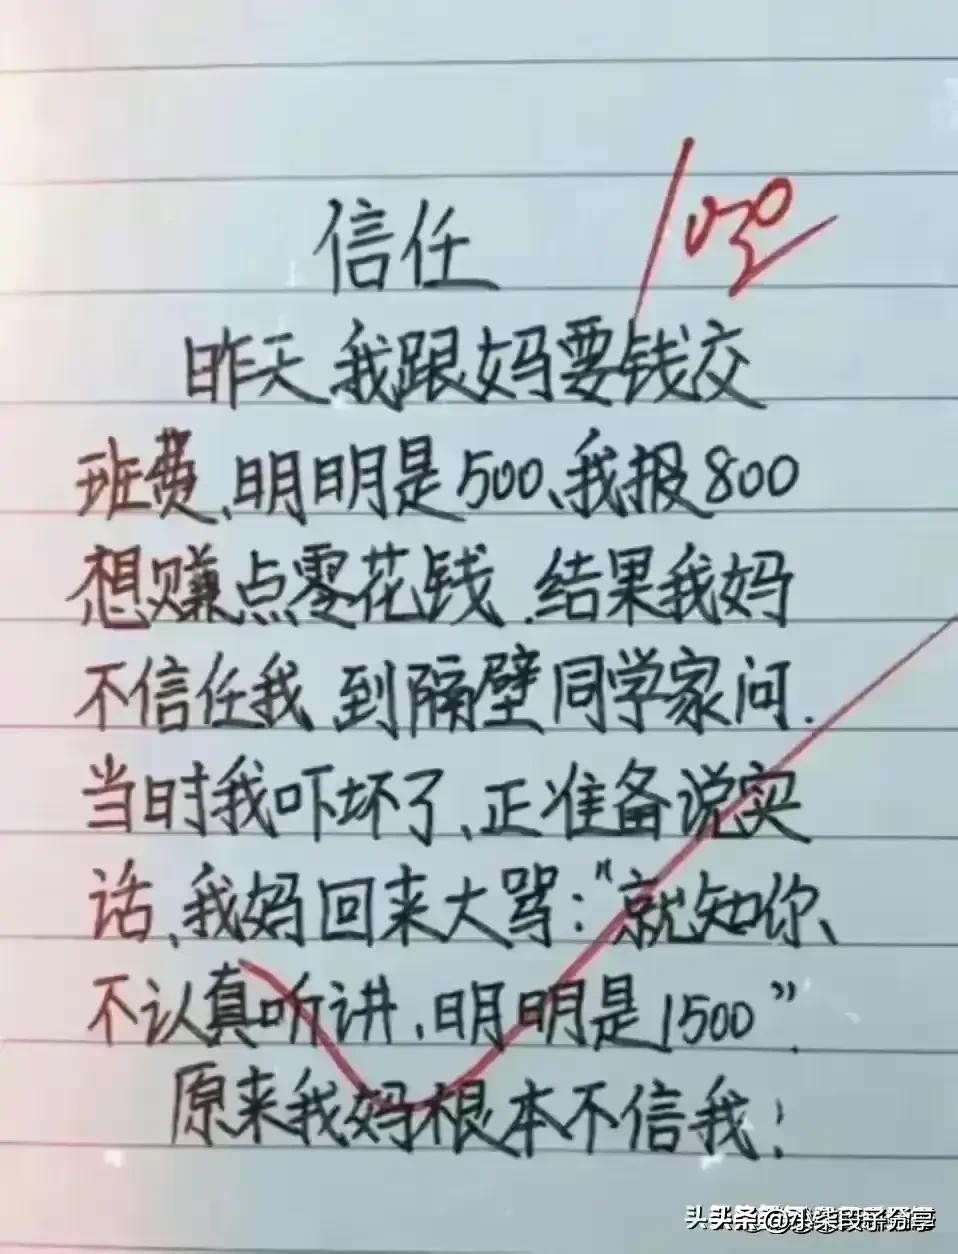 信任
昨天、我跟妈要钱交
班费、明明是500、我报800
想赚点零花钱.结果我妈
不信任我、到隔壁同学家问.
当时我吓坏了、正准备说实
话、我妈回来大骂:“就知你、
不认真听讲.明明是1500”.
原来我妈根本不信我!
@小柴段子分享